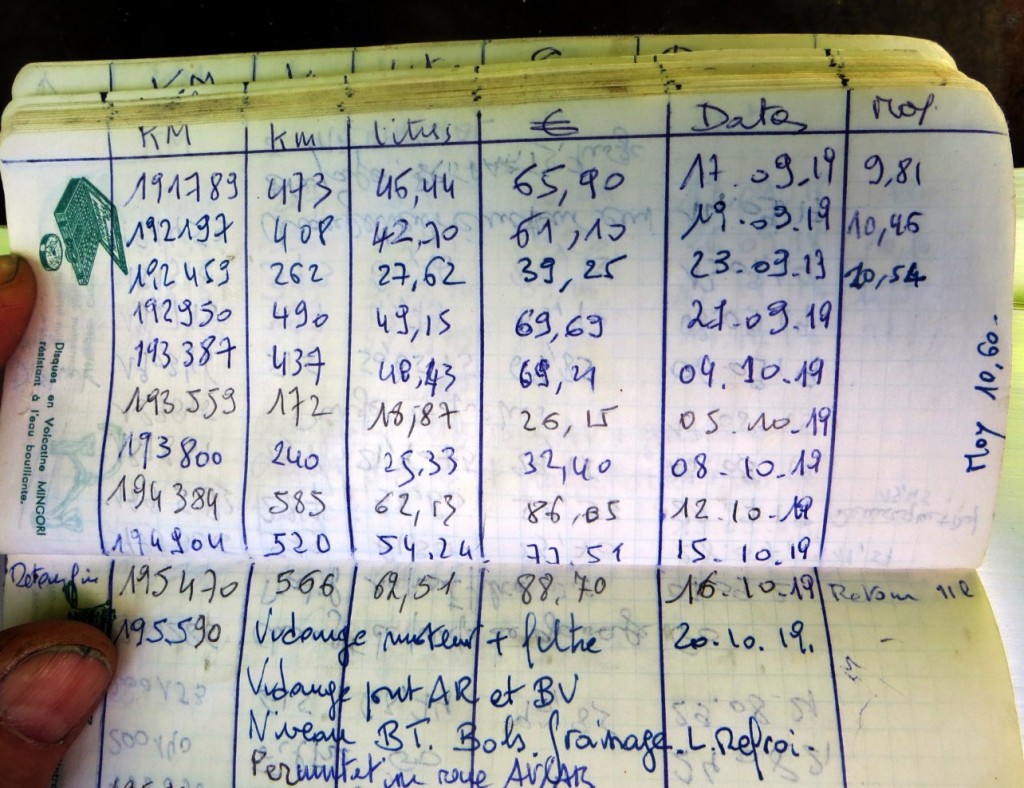 KM km litres € Dates Moy.
191789 473 46,44 65,90 17.09.19 9,81
192197 408 42,70 61,10 19.09.19 10,46
192459 262 27,62 39,25 23.09.19 10,54
192950 490 49,15 69,69 27.09.19
193387 437 48,43 69,21 04.10.19
193559 172 18,87 26,15 05.10.19
193800 240 25,33 32,40 08.10.19
194384 585 62,13 86,05 12.10.19
194904 520 54.24 73.51 15.10.19
195470 566 62,51 88.70 16.10.19 Retour
195.590 Vidange moteur + filtre 20.10.19.
Vidange pont AR et BV
Niveau BT. Bols. L. Refroi.
roue AV/AR
Moy 10,60.
Disques en Volcatine MINGORI
résistant à l'eau bouillante.